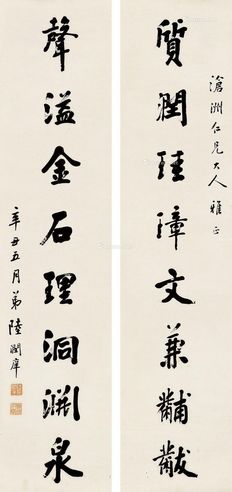 滄洲仁兄大人雅正
質潤珪璋文兼黼黻
聲溢金石理洞淵泉
辛丑五月弟陸潤庠